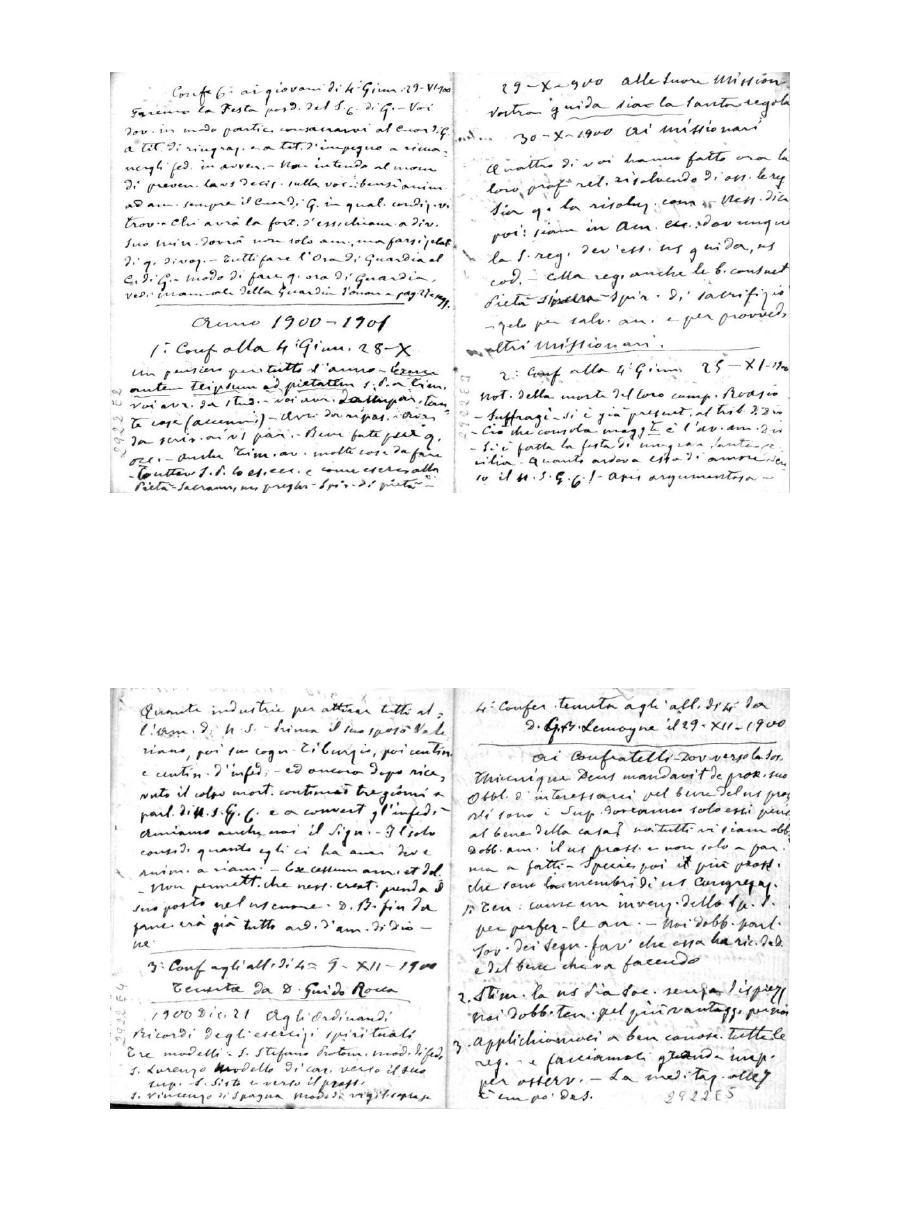 Confe 6ª ai giovani di 4ª Ginn. 29-VI-900
Faremo la Festa posd. del S. C. di G. - Voi
dov. in modo partic. consacrarvi al Cuor di G.
a tit. di ringraz. e a tit. d'impegno a rima-
nergli fed. in avven. - Non intendo al mom.
di preven. la vs decis. sulla voc. ibensi anim.
ad am. sempre il Cuor di G. in qual. condiz. vi
trov. - Chi avrà la fort. d'ess. chiam. a div.
suo min. dovrà non solo am., ma farsi zelat.
di q. divoz. - Tutti fare l'Ora di Guardia al
C. di G. - modo di fare q. ora di Guardia,
vedi manuale della Guardia d'onore pag.
Anno 1900-1901
1ª Conf alla 4ª Ginn. 28-X
Un pensiero per tutto l'anno - Exerce
autem teipsum ad pietatem S. P. a Tim.
voi avr. da stud. - voi avr. da impar. tan-
te cose (accenni) - Avr. da ripas. - Avr.
da scriv. ai vs par. - Bene fate per q.
occ. - Anche Tim. av. molte cose da fare
- Tuttavo S. P. lo es. ecc. e come eserc. alla
Pietà - Sacram., preghi - Spir. di pietà -
2922 E2
29-X-900 alle Suore Mission.
Vostra guida sia la santa regola
30-X-1900 Ai missionari
Quattro di voi hanno fatto ora la
loro prof. rel. risolvendo di oss. le reg
Sia q. la risoluz. com. - Ness. dica
poi: siam in Am. ecc. dovunque
la S. reg. dev'ess. ns guida, ns
cod. - Ma reg. anche le b. consuet
Pietà - Spir. di sacrifizio
- zelo per salv. an. e per provved.
altri missionari.
2ª Conf alla 4ª Ginn. 25-XI-1900
Not. della morte del loro comp. Roasio
- Suffragi - Si è già present. al trib. di Dio
- Ciò che consola magg.te è l'av. am. Dio
- Si è fatta la festa di una gran santa Ce-
cilia - Quanto ardeva essa di amore
il N. S. G. C.! - Apis argumentosa -
2922 E3
Quante industrie per attirar tutti al-
l'am. di N. S. - Prima il suo sposo Vale
riano, poi suo cogn. Tiburzio, poi centin
e centin. d'infed. - ed ancora dopo rice-
vuto il colpo mort. continuò tre giorni a
parl. di N. S. G. C. e a convert. gl'infed. -
Amiamo anche noi il Sign. - Il solo
consid. quanto egli ci ha am. deve
anim. a riam. - Excessum am. et dol.
- Non permett. che ness. creat. prenda il
suo posto nel ns cuore - D. B. fin da
fanc. era già tutto ard. d'am. di Dio -
ne
3ª Conf agli all. di 4ª 9-XII-1900
Tenuta da D. Guido Rocca
1900 Dic. 21 Agli Ordinandi
Ricordi degli esercizi spirituali
Tre modelli - S. Stefano Protom. mod. di fed.
S. Lorenzo modello di car. verso il suo
sup. S. Sisto e verso il pross.
S. Vincenzo di Spagna
2922 E4
4ª Confer. tenuta agli all. di 4ª da
D. G.B. Lemoyne il 29-XII-1900
Ai Confratelli - Dov. verso la Soc.
Unicuique Deus mandavit de prox. suo
Obbl. d'interessarci pel bene del ns pros
Vi sono i Sup. dovranno solo essi pens
al bene della casa? noi tutti vi siam obb.
Dobb. am. il ns pross. e non solo a par.
ma a fatti - Specie, poi il più pross.
che sono i membri di ns Congregaz.
1. Ten. come un invenz. dello Sp. S.
per perfez. le an. - Noi dobb. parl.
fov. dei segn. favi che essa ha ric. da D.
e del bene che va facendo
2. Stim. la ns Pia Soc. senza disprezz
noi dobb. ten. pel più vantagg. per noi
3. Applichiamoci a ben conosc. tutte le
reg. - e facciamoci grande imp.
per osserv. - La meditaz. alle
E un po' da S.
2922 E5